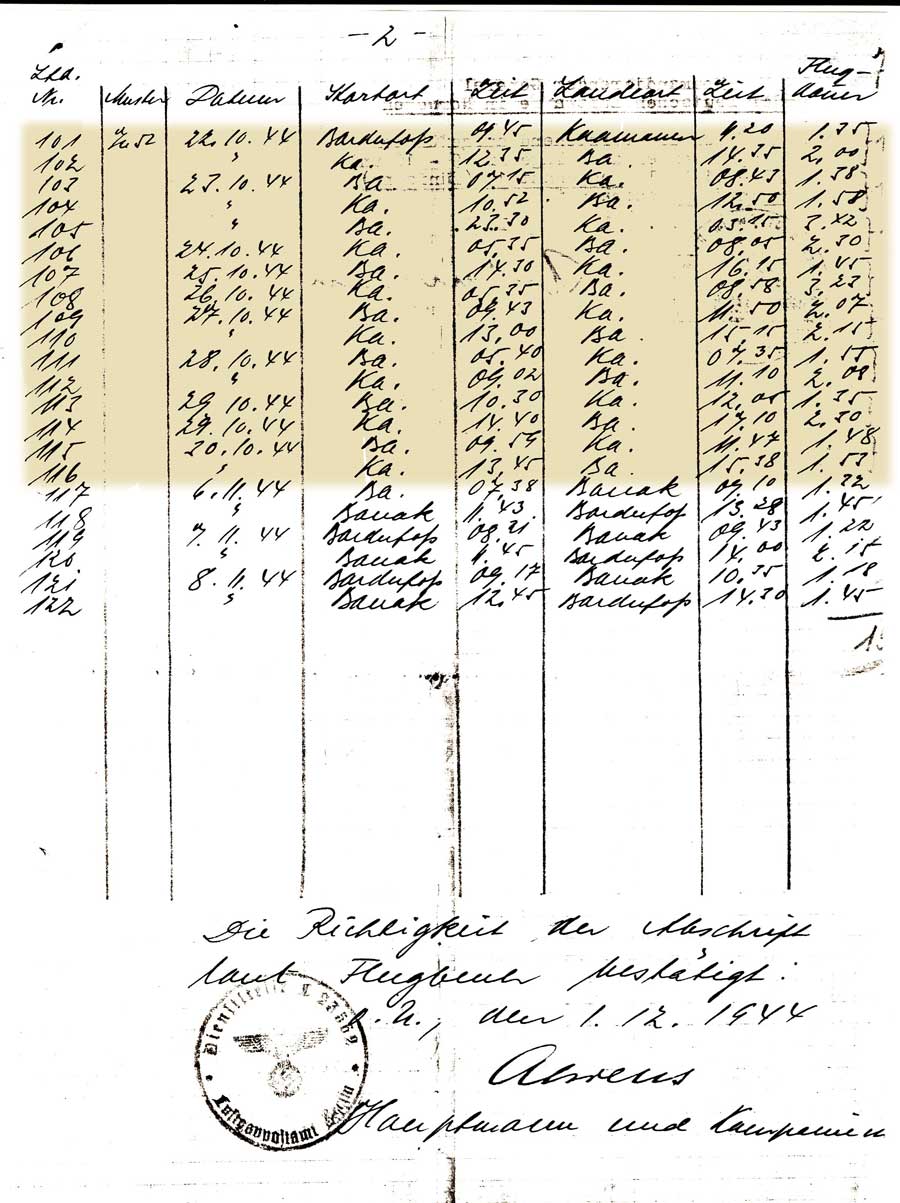 - 2 -
Lfd. Flug-
Nr. Muster Datum Startort Zeit Landeort Zeit dauer
101 Ju 52 22.10.44 Bardufoß 09.45 11.20 1.35
102 " Ka. 12.35 Ba. 14.35 2.00
103 23.10.44 Ba. 07.15 Ka. 08.43 1.38
104 " Ka. 10.52 Ba. 12.50 1.58
105 " Ba. 23.30 Ka. 03.15
106 24.10.44 Ka. 05.35 Ba. 08.05 2.30
107 25.10.44 Ba. 14.30 Ka. 16.15 1.45
108 26.10.44 Ka. 05.35 Ba. 08.58 3.23
109 27.10.44 Ba. 09.43 Ka. 11.50 2.07
110 " Ka. 13.00 Ba. 15.15 2.15
111 28.10.44 Ba. 05.40 Ka. 07.35 1.55
112 " Ka. 09.02 Ba. 11.10 2.08
113 29.10.44 Ba. 10.30 Ka. 12.05 1.35
114 29.10.44 Ka. 14.40 Ba. 17.10 2.30
115 Ba. 09.59 Ka. 11.47 1.48
116 " Ka. 13.45 Ba. 15.38 1.53
117 6.11.44 Ba. 07.38 Banak 09.10 1.32
118 " Banak 11.43 Bardufoß 13.28 1.45
119 7.11.44 Bardufoß 08.21 Banak 09.43 1.22
120 " Banak 11.45 Bardufoß 14.00 2.15
121 8.11.44 Bardufoß 09.17 Banak 10.35 1.18
122 " Banak 12.45 Bardufoß 14.30 1.45
Die Richtigkeit der Abschrift
laut Flugbuch bestätigt:
O.U., den 1.12.1944
Ahrens
Hauptmann und Kompanie
Dienststelle L 23569
Luftgaupostamt Berlin